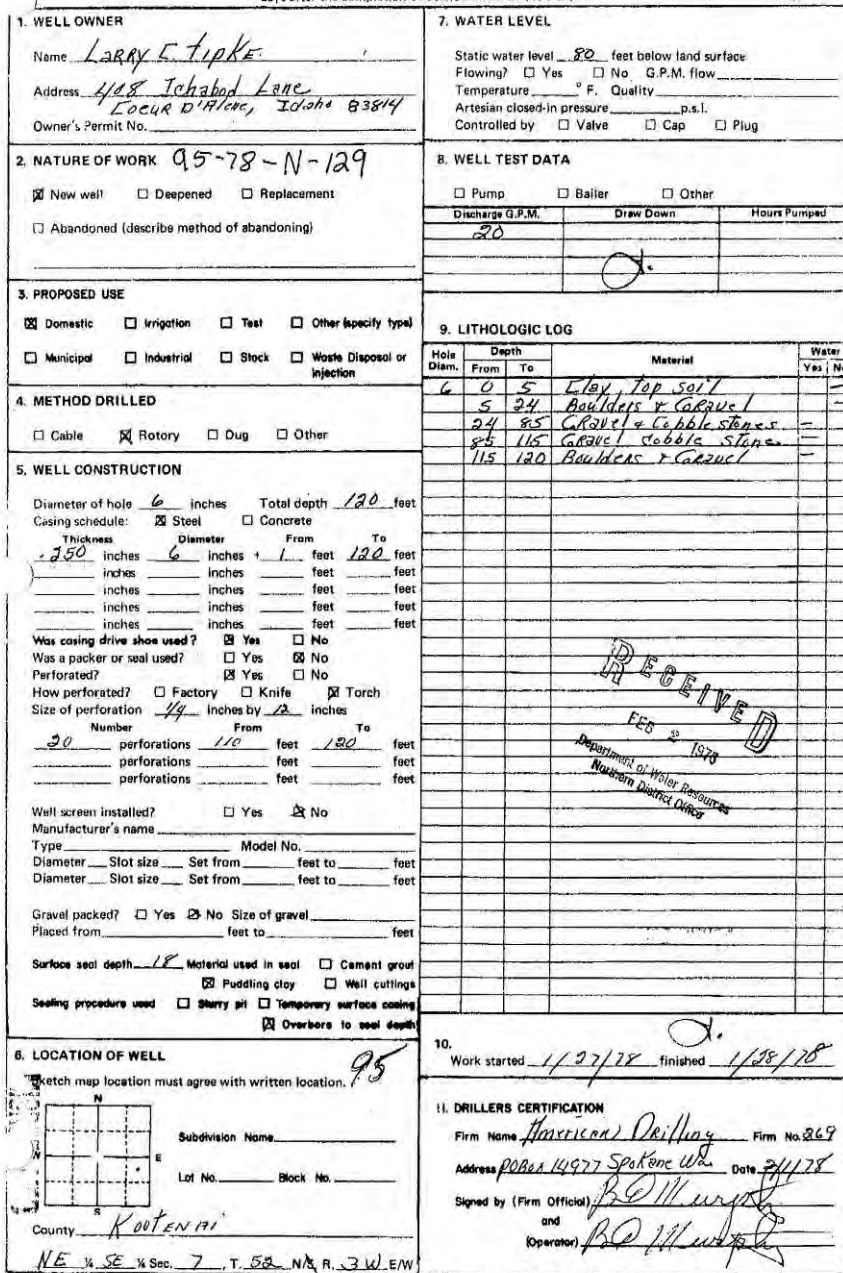 1. WELL OWNER
Name Larry C. Tipke
Address 408 Ichabod Lane
Coeur D'Alene, Idaho 83814
Owner's Permit No.
2. NATURE OF WORK 95-78-N-129
☒ New well ☐ Deepened ☐ Replacement
☐ Abandoned (describe method of abandoning)
3. PROPOSED USE
☒ Domestic ☐ Irrigation ☐ Test ☐ Other (specify type)
☐ Municipal ☐ Industrial ☐ Stock ☐ Waste Disposal or Injection
4. METHOD DRILLED
☐ Cable ☒ Rotory ☐ Dug ☐ Other
5. WELL CONSTRUCTION
Diameter of hole 6 inches Total depth 120 feet
Casing schedule: ☒ Steel ☐ Concrete
Thickness Diameter From To
.250 inches 6 inches + 1 feet 120 feet
inches inches feet feet
inches inches feet feet
inches inches feet feet
inches inches feet feet
Was casing drive shoe used? ☒ Yes ☐ No
Was a packer or seal used? ☐ Yes ☒ No
Perforated? ☒ Yes ☐ No
How perforated? ☐ Factory ☐ Knife ☒ Torch
Size of perforation 1/4 inches by 12 inches
Number From To
20 perforations 110 feet 120 feet
perforations feet feet
perforations feet feet
Well screen installed? ☐ Yes ☒ No
Manufacturer's name
Type Model No.
Diameter Slot size Set from feet to feet
Diameter Slot size Set from feet to feet
Gravel packed? ☐ Yes ☒ No Size of gravel
Placed from feet to feet
Surface seal depth 18 Material used in seal ☐ Cement grout
☒ Puddling clay ☐ Well cuttings
Sealing procedure used ☐ Slurry pit ☐ Temporary surface casing
☒ Overbore to seal depth
6. LOCATION OF WELL 95
Sketch map location must agree with written location.
N
Subdivision Name
E
Lot No. Block No.
S
County Kootenai
NE ¼ SE ¼ Sec. 7, T. 52 N/S, R. 3 W E/W
7. WATER LEVEL
Static water level 80 feet below land surface
Flowing? ☐ Yes ☐ No G.P.M. flow
Temperature ° F. Quality
Artesian closed-in pressure p.s.i.
Controlled by ☐ Valve ☐ Cap ☐ Plug
8. WELL TEST DATA
☐ Pump ☐ Bailer ☐ Other
Discharge G.P.M. Draw Down Hours Pumped
20
9. LITHOLOGIC LOG
Hole Diam. Depth Material Water
From To Yes No
6 0 5 Clay, top soil –
5 24 Boulders & Gravel –
24 85 Gravel & Cobble stones –
85 115 Gravel cobble stone –
115 120 Boulders & Gravel –
RECEIVED
FEB 2 1978
Department of Water Resources
Northern District Office
10.
Work started 1/27/78 finished 1/28/78
11. DRILLERS CERTIFICATION
Firm Name American Drilling Firm No. 269
Address PO Box 14977 Spokane Wa Date 2/1/78
Signed by (Firm Official)
and
(Operator)